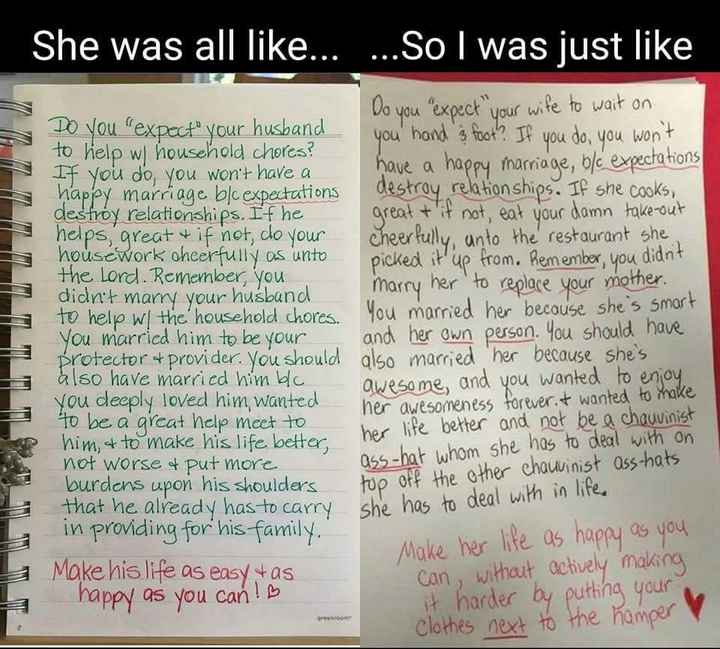 She was all like... ...So I was just like
Do you "expect" your husband
to help w/ household chores?
If you do, you won't have a
happy marriage b/c expectations
destroy relationships. If he
helps, great + if not, do your
housework cheerfully as unto
the Lord. Remember, you
didn't marry your husband
to help w/ the household chores.
You married him to be your
protector + provider. You should
also have married him b/c
you deeply loved him, wanted
to be a great help meet to
him, + to make his life better,
not worse + put more
burdens upon his shoulders
that he already has to carry
in providing for his family.
Make his life as easy + as
happy as you can!
Do you "expect" your wife to wait on
you hand & foot? If you do, you won't
have a happy marriage, b/c expectations
destroy relationships. If she cooks,
great + if not, eat your damn take-out
cheerfully, unto the restaurant she
picked it up from. Remember, you didn't
marry her to replace your mother.
You married her because she's smart
and her own person. You should have
also married her because she's
awesome, and you wanted to enjoy
her awesomeness forever. + wanted to make
her life better and not be a chauvinist
ass-hat whom she has to deal with on
top off the other chauvinist ass-hats
she has to deal with in life.
Make her life as happy as you
can, without actively making
it harder by putting your
clothes next to the hamper